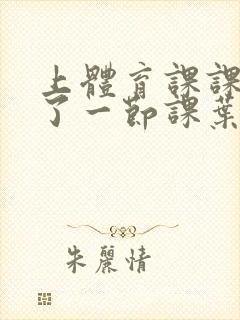 上體育課課
了一節課葉
朱麗情